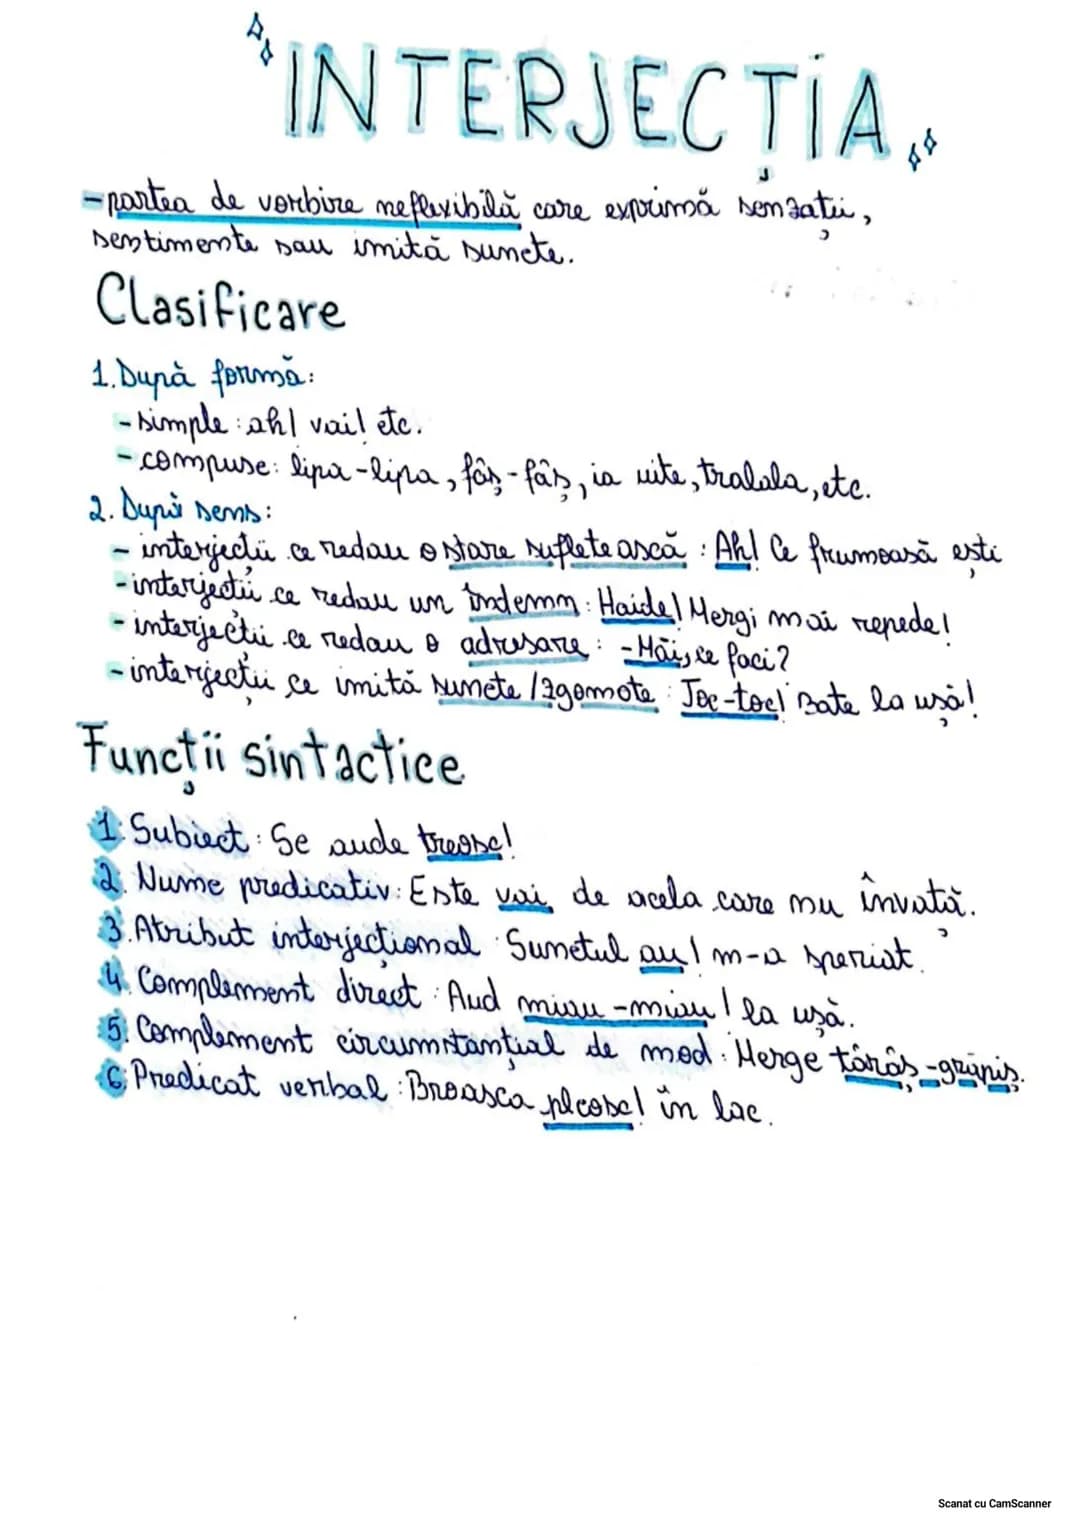 INTERJECȚIA
-partea de vorbire neflexibilă care exprimă senzații,
sentimente sau imită sunete.
Clasificare
1. După formă:
- simple: ah! vai! etc.
- compuse: lipa-lipa, fâș-fâș, ia uite, tralala, etc.
2. După sens:
- interjecții ce redau o stare sufletească : Ah! Ce frumoasă ești
- interjecții ce redau un îndemn: Haide! Mergi mai repede!
- interjecții ce redau o adresare: -Măi, ce faci?
- interjecții ce imită sunete /zgomote: Toc-toc! Bate la ușă!
Funcții sintactice
1. Subiect: Se aude trosc!
2. Nume predicativ: Este vai de acela care nu învață.
3. Atribut interjecțional: Sunetul au! m-a speriat.
4. Complement direct: Aud miau-miau! la ușă.
5. Complement circumstanțial de mod: Merge târâș-grăpiș.
6. Predicat verbal: Broasca pleosc! în lac.
Scanat cu CamScanner